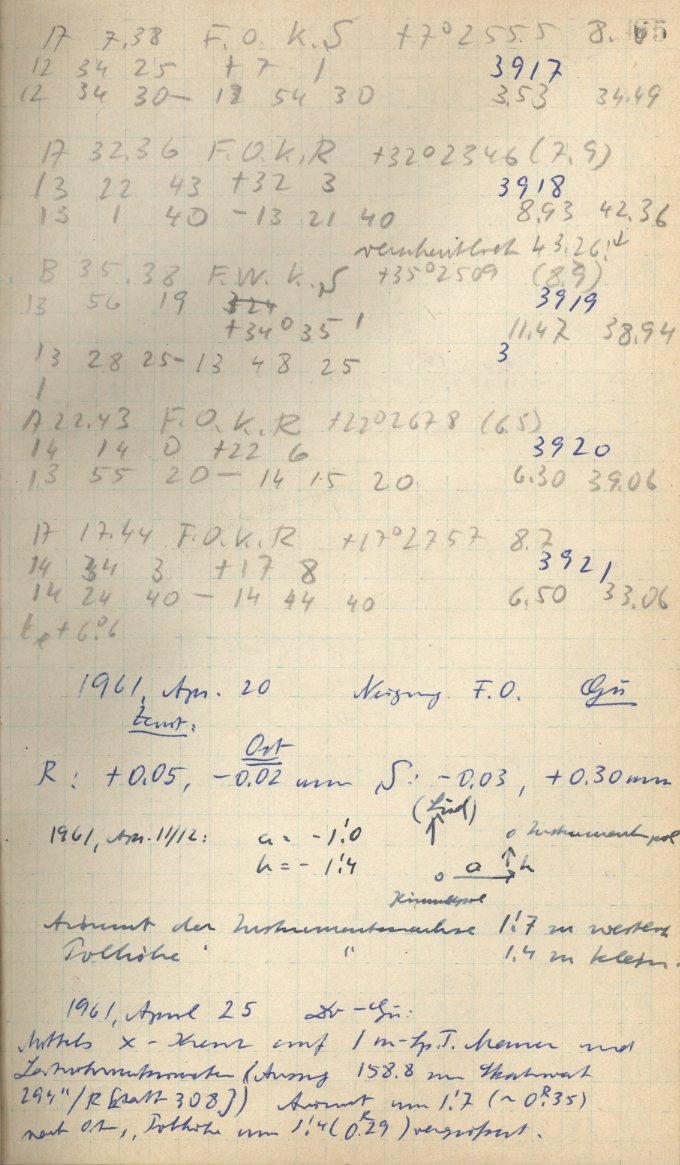 17 7.38 F.O. K.S +7°2555 8. 65
12 34 25 +7 1 3917
12 34 30 – 12 54 30 3.53 34.49
17 32.36 F.O.K.R +32°2346 (7.9)
13 22 43 +32 3 3918
13 1 40 – 13 21 40 8.93 42.36
43.26!
B 35.38 F.W. K.S +35°2509 (8.9)
13 56 19 324 3919
+34° 35' 11.47 38.94
13 28 25 – 13 48 25 3
1
A 22.43 F.O.K.R +22°2678 (6.5)
14 14 0 +22 6 3920
13 55 20 – 14 15 20 6.30 39.06
17 17.44 F.O.K.R +17°2757 8.7
14 34 3 +17 8 3921
14 24 40 – 14 44 40 6.50 33.06
+6.°6
1961, Apr. 20 Neigung F.O. Gü
Ost
R: +0.05, -0.02 mm S: -0.03, +0.30 mm
(Süd)
1961, Apr. 11/12: a = -1.'0 Instrumentenpol
h = - 1.'4 a h
Himmelspol
Azimut der Instrumentenachse 1.'7 zu westlich
Polhöhe " " 1.4 zu klein.
1961, April 25 Dr – Gü:
Mittels x - Kreuz auf 1 m-Sp.T. Messer und
(Auszug 158.8 mm
294"/R [statt 308]) Azimut um 1.'7 (~ 0.R35)
nach Ost, Polhöhe um 1.'4 (0.R29) vergrößert.